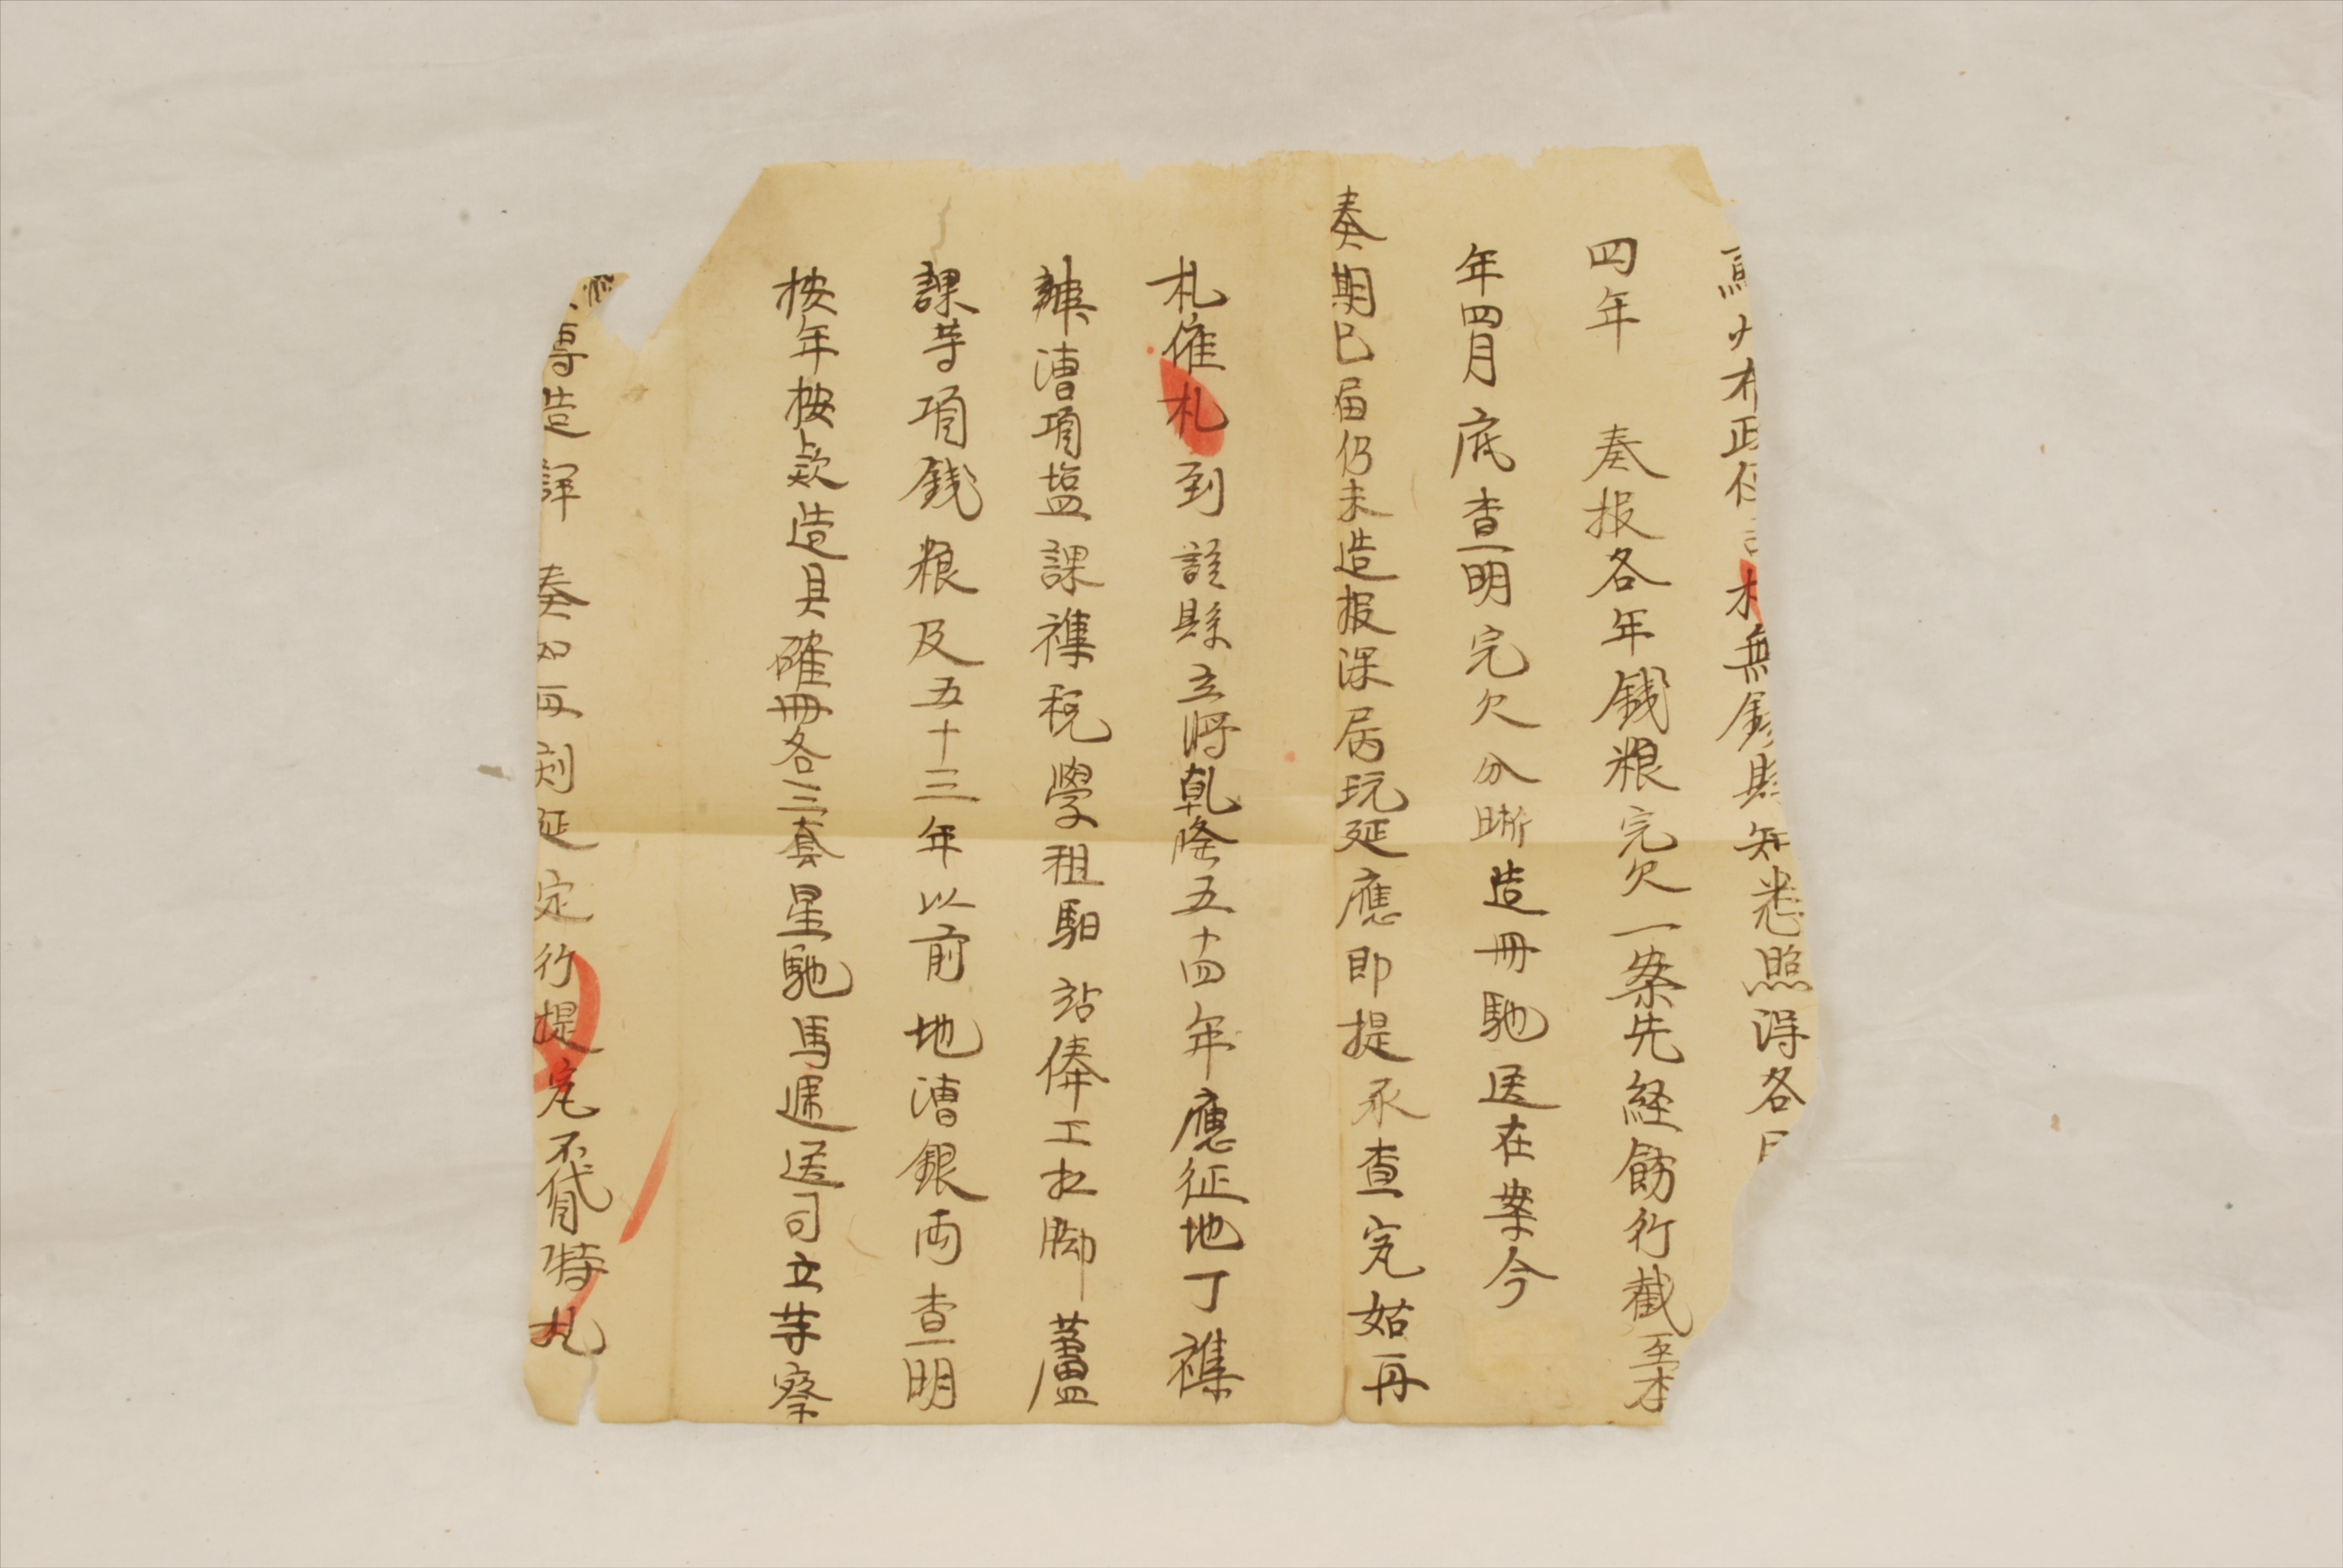 札無錫縣知悉照得各
四年　奏报各年錢粮完欠一案先経飭行截至本
年四月底查明完欠分晰造冊馳送在案今
奏期已届仍未造报深屬玩延應即提承查究姑再
札催札到該縣立將乹隆五十四年應征地丁襍
辦漕項塩課襍税學租馹站俸工水脚蘆
課等項錢粮及五十三年以前地漕銀両查明
按年按欵造具確冊各三套星馳馬遞送司立等察
專造詳　奏如再刻延定行提究不貸特札